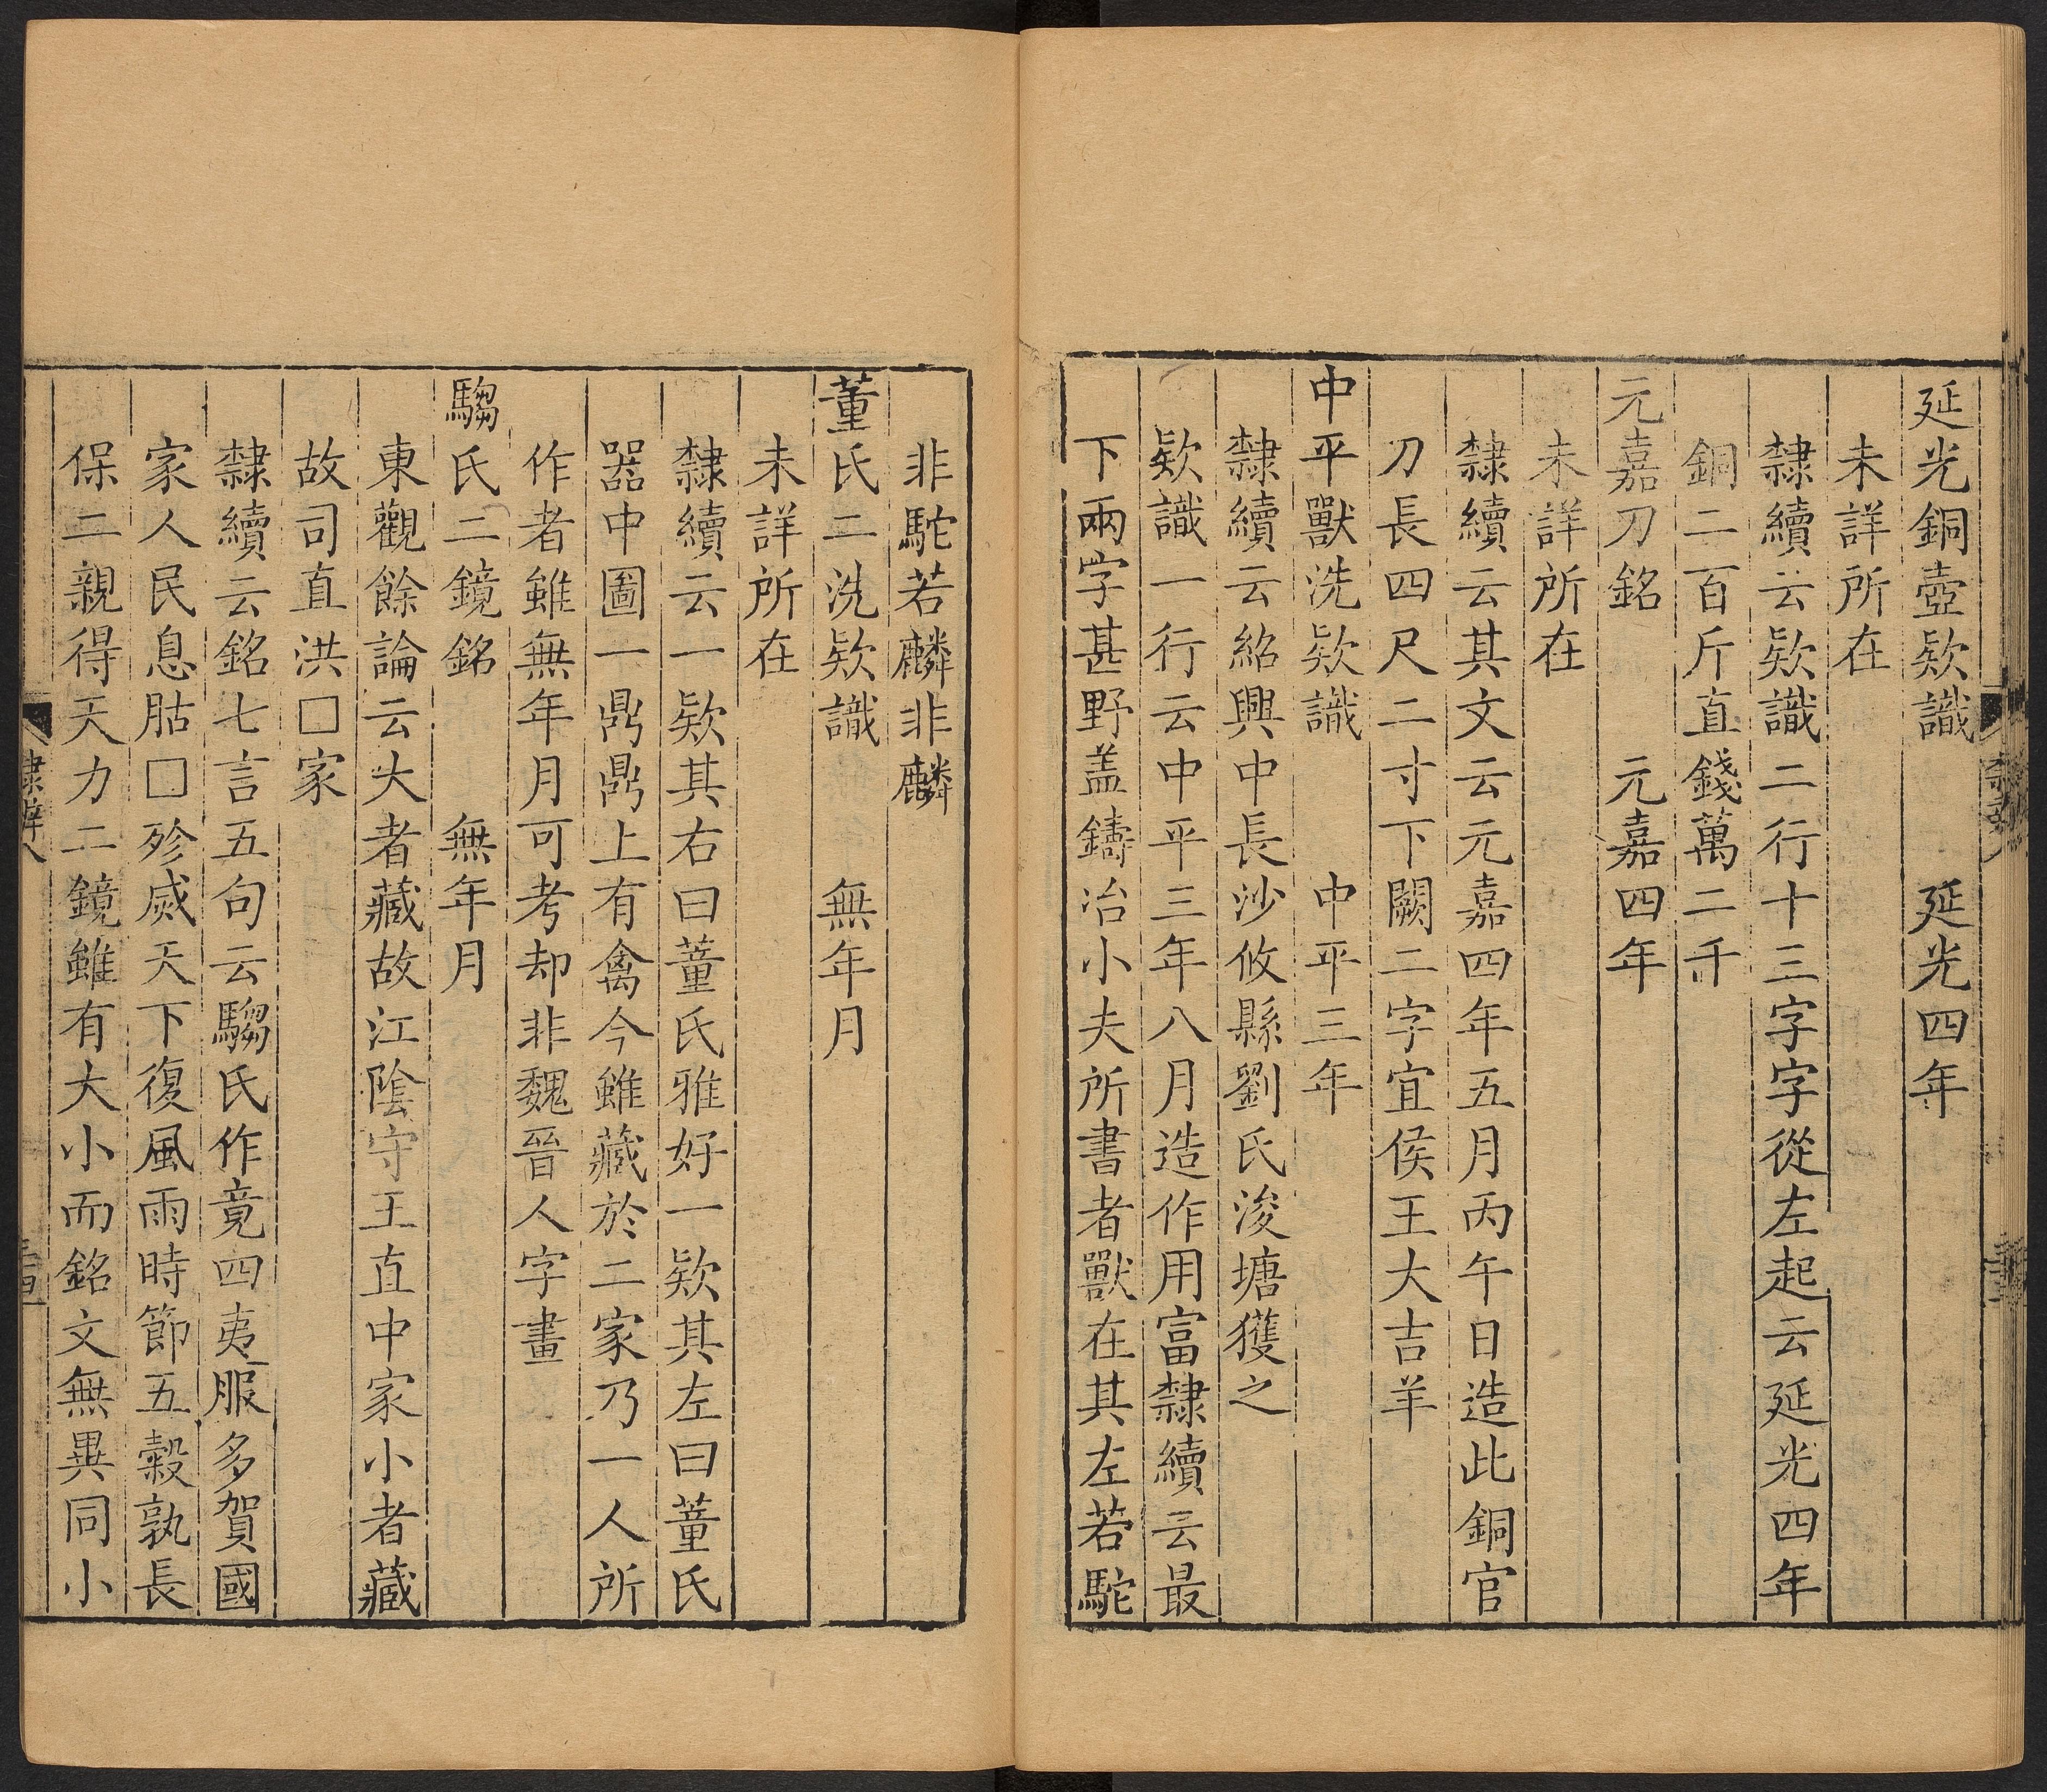 延光銅壺欵識 延光四年
未詳所在
隸續云欵識二行十三字字從左起云延光四年
銅二百斤直錢萬二千
元嘉刀銘 元嘉四年
未詳所在
隸續云其文云元嘉四年五月丙午日造此銅官
刀長四尺二寸下闕二字宜侯王大吉羊
中平獸洗欵識 中平三年
隸續云紹興中長沙攸縣劉氏浚塘獲之
欵識一行云中平三年八月造作用富隸續云最
下兩字甚野盖鑄冶小夫所書者獸在其左若駝
非駝若麟非麟
董氏二洗欵識 無年月
未詳所在
隸續云一欵其右曰董氏雅好一欵其左曰董氏
器中圖一鼎鼎上有禽今雖藏於二家乃一人所
作者雖無年月可考却非魏晉人字畫
騶氏二鏡銘 無年月
東觀餘論云大者藏故江陰守王直中家小者藏
故司直洪□家
隸續云銘七言五句云騶氏作竟四夷服多賀國
家人民息胡□殄烕天下復風雨時節五穀孰長
保二親得天力二鏡雖有大小而銘文無異同小
隸辨八